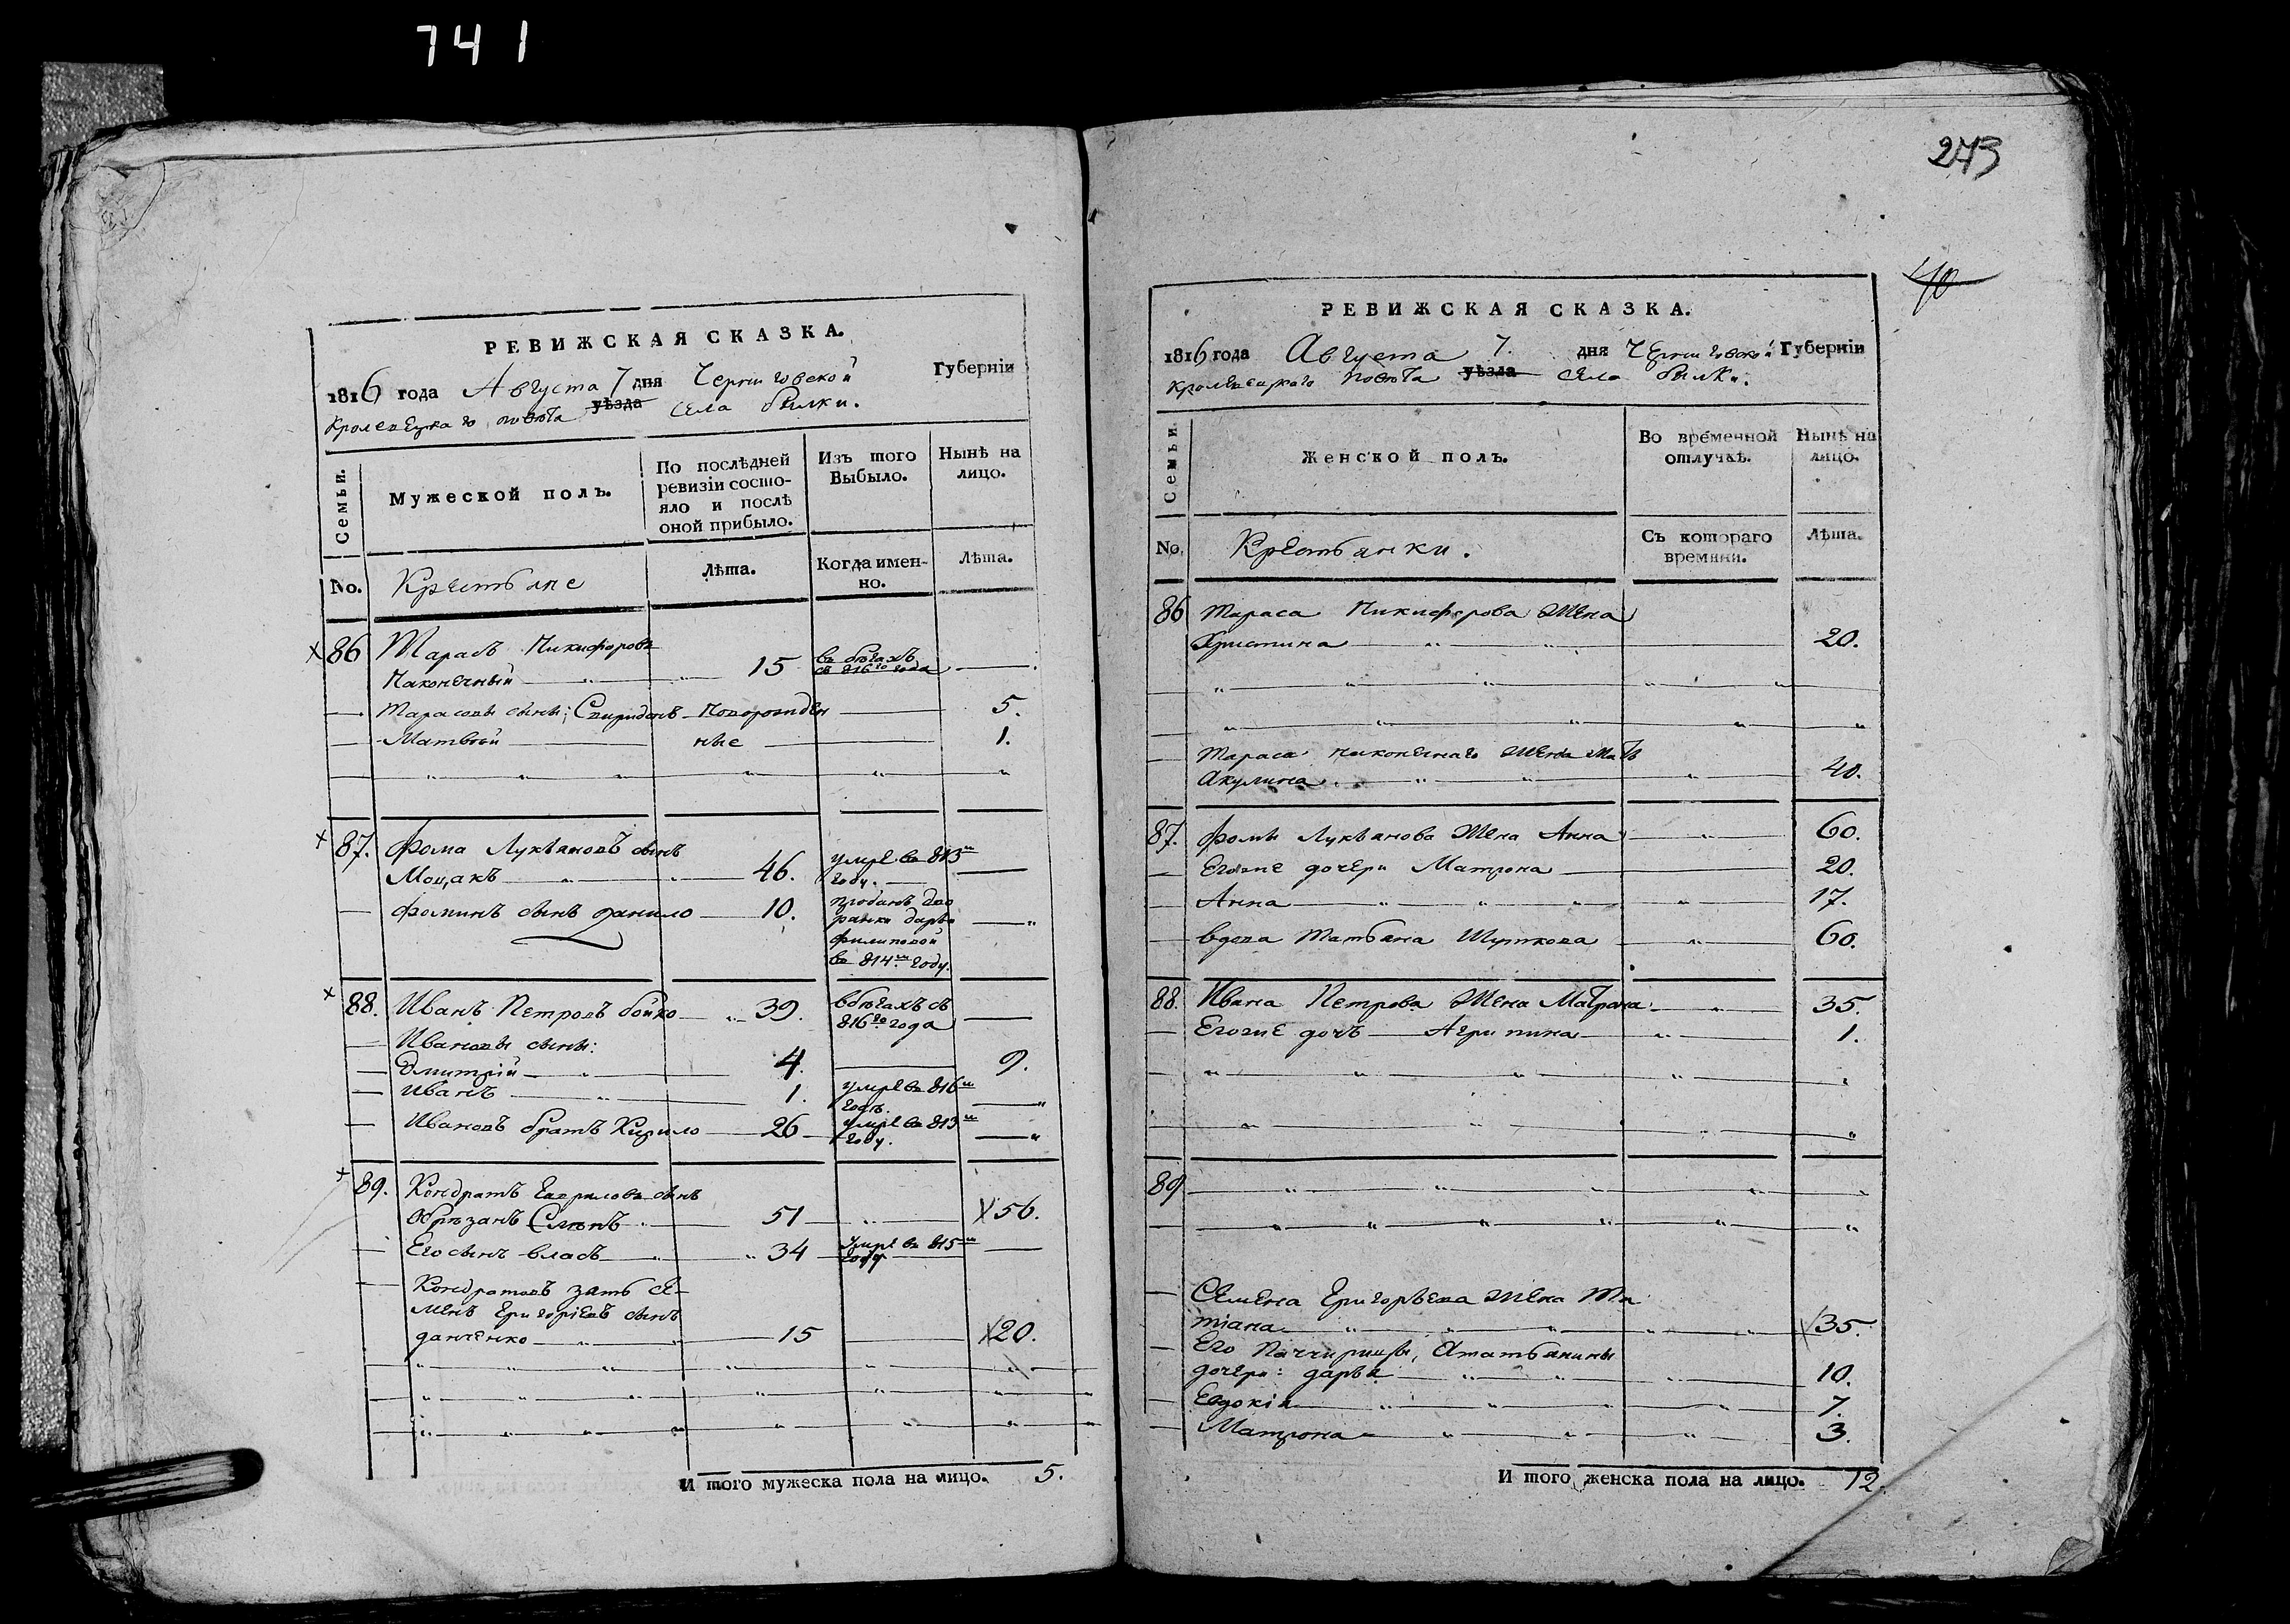 741
РЕВИЖСКАЯ СКАЗКА.
1816 года Августа 7 дня Черниговской Губерніи
Кролевецкаго повѣта уѣзда Села Билки.
Семьи.
Мужеской полъ.
По послѣдней
ревизіи состо-
яло и послѣ
оной прибыло.
Изъ того
Выбыло.
Нынѣ на
лицо.
No.
Крестьяне
Лѣта.
Когда имен-
но.
Лѣта.
86 Тарасъ Никифоровъ
Наконечный 15 въ бѣгахъ
съ 816го года
Тарасовы сыны: Спиридонъ новорожден 5.
Матвѣй ные 1.
87. Фома Лукьяновъ сынъ
Моцакъ 46. умре въ 813м
году.
Фоминъ сынъ Данило 10. проданъ дво
рянки Дарьи
Филиповой
въ 814м году.
88. Иванъ Петровъ бойко 39. в бѣгахъ съ
816го года
Ивановы сыны:
Дмитрій 4. 9.
Иванъ 1. умре въ 816м
годѣ.
Ивановъ братъ Кирило 26 умре въ 813м
году.
89. Кондратъ Гавриловъ сынъ
Обрѣзанъ Слѣпъ 51 56.
Его сынъ Власъ 34 умре въ 815м
году
Кондратовъ зять Се-
менъ Григоріевъ сынъ
Данченко 15 20.
И того мужеска пола на лицо. 5.
273
40
РЕВИЖСКАЯ СКАЗКА.
1816 года Августа 7. дня Черниговской Губерніи
Кролевецкаго повѣта уѣзда села Билки.
Семьи.
Женской полъ.
Во временной
отлучкѣ.
Нынѣ на
лицо.
No.
Крестьянки.
Съ котораго
времяни.
Лѣта.
86 Тараса Никифорова Жена
Христина 20.
Тараса Наконечнаго Жена Мать
Акулина 40.
87. Фомы Лукьянова Жена Анна 60.
Егоже дочери Матрона 20.
Анна 17.
вдова Татьяна Шуткова 60.
88. Ивана Петрова Жена Матрона 35.
Егоже дочь Агрипина 1.
89
Семена Григорьева Жена Та
тіана 35.
Его Падчирицы, Ататьянины
дочери: Дарья 10.
Евдокія 7.
Матрона 3.
И того женска пола на лицо. 12.